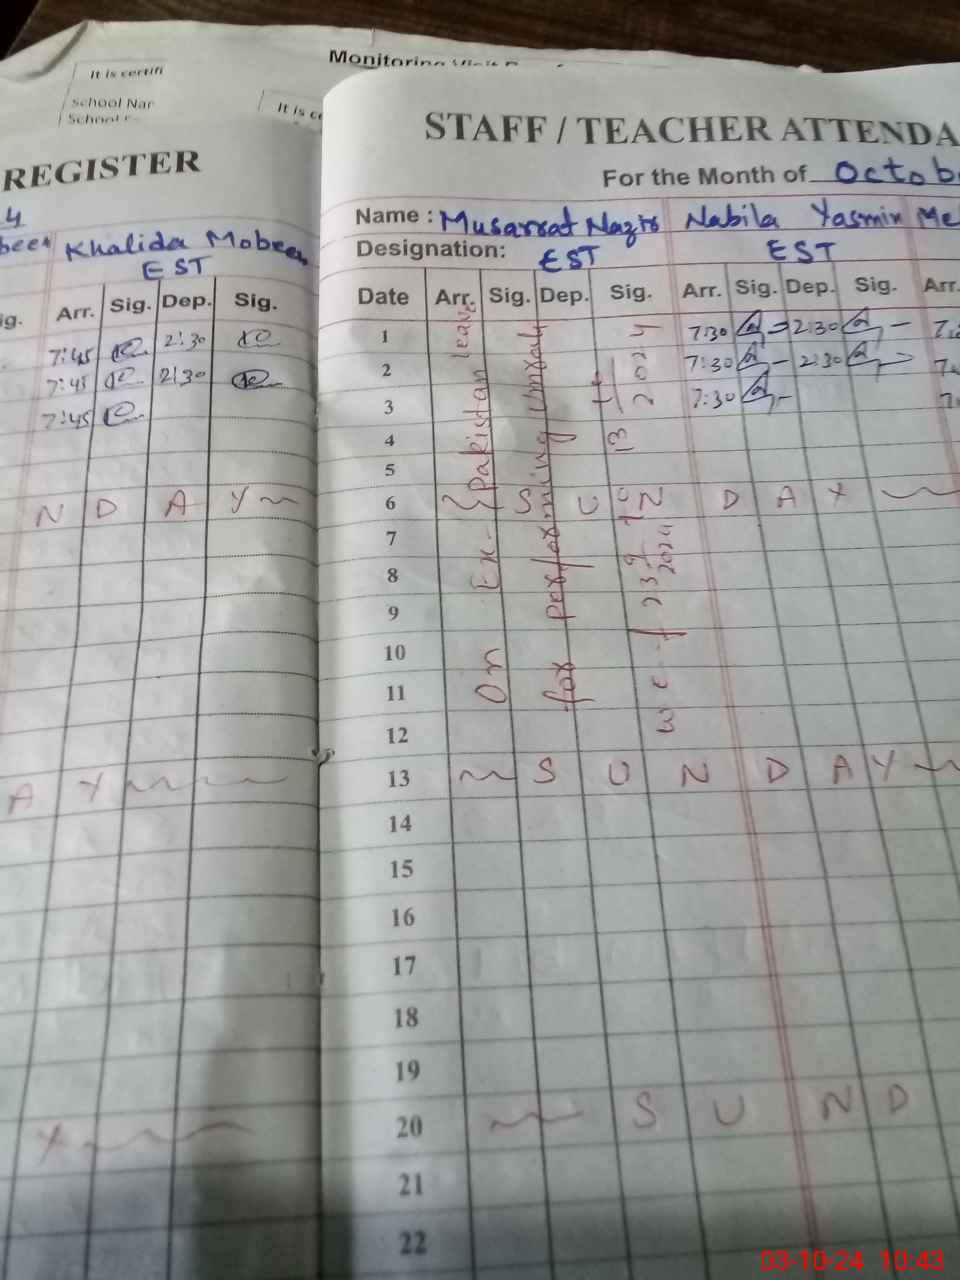 Monitoring
It is certifi
School Nar
It is ce
REGISTER
4
been Khalida Mobeen
EST
ig. Arr. Sig. Dep. Sig.
7:45 2:30
7:45 2:30
7:45
N D A Y
A Y
Y
STAFF / TEACHER ATTENDA
For the Month of Octob
Name : Musarrat Nazir Nabila Yasmin Me
Designation: EST EST
Date Arr. Sig. Dep. Sig. Arr. Sig. Dep. Sig. Arr.
1 7:30 2:30
2 7:30 2:30
3 7:30
4
5
6 S U N D A Y
7
8
9
10
11
12
13 S U N D A Y
14
15
16
17
18
19
20 S U N D
21
22
On Ex-Pakistan leave
for performing Umrah
w e f 23 9 2024
13 2024
03-10-24 10:43